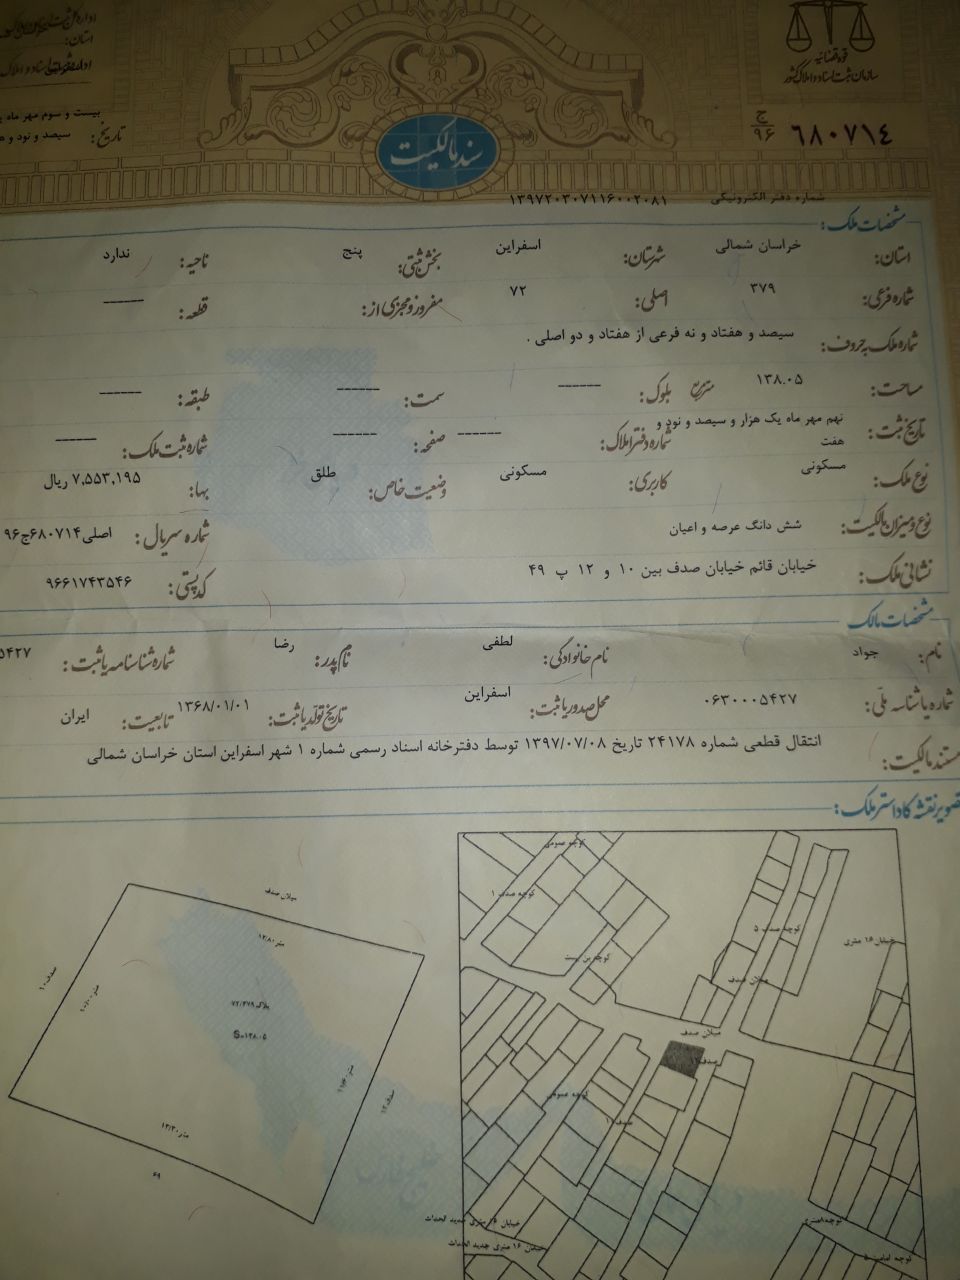 قوه قضائیه
سازمان ثبت اسناد و املاک کشور
استان:
بیست و سوم مهر ماه
تاریخ: سیصد و نود و
۶۸۰۷۱۴ ج ۹۶
سند مالکیت
شماره دفتر الکترونیکی ۱۳۹۷۲۰۳۰۷۱۱۶۰۰۲۰۸۱
مشخصات ملک:
استان: خراسان شمالی شهرستان: اسفراین بخش ثبتی: پنج ناحیه: ندارد
شماره فرعی: ۳۷۹ اصلی: ۷۲ مفروز و مجزی از: قطعه: ------
شماره ملک به حروف: سیصد و هفتاد و نه فرعی از هفتاد و دو اصلی .
مساحت: ۱۳۸.۰۵ متر مربع بلوک: ------ سمت: ------ طبقه: ------
تاریخ ثبت: نهم مهر ماه یک هزار و سیصد و نود و هفت شماره دفتر املاک: ------ صفحه: ------ شماره ثبت ملک: ------
نوع ملک: مسکونی کاربری: مسکونی وضعیت خاص: طلق بها: ۷,۵۵۳,۱۹۵ ریال
نوع و میزان مالکیت: شش دانگ عرصه و اعیان شماره سریال: اصلی۶۸۰۷۱۴ج۹۶
نشانی ملک: خیابان قائم خیابان صدف بین ۱۰ و ۱۲ پ ۴۹ کد پستی: ۹۶۶۱۷۴۳۵۴۶
مشخصات مالک
نام: جواد نام خانوادگی: لطفی نام پدر: رضا شماره شناسنامه یا ثبت: ۵۴۲۷
شماره یا شناسه ملی: ۰۶۳۰۰۰۵۴۲۷ محل صدور یا ثبت: اسفراین تاریخ تولد یا ثبت: ۱۳۶۸/۰۱/۰۱ تابعیت: ایران
مستند مالکیت: انتقال قطعی شماره ۲۴۱۷۸ تاریخ ۱۳۹۷/۰۷/۰۸ توسط دفترخانه اسناد رسمی شماره ۱ شهر اسفراین استان خراسان شمالی
تصویر نقشه کاداستر ملک:
میلان صدف
متر ۱۲/۸۰
صدف ۱۰
پلاک ۷۲/۳۷۹
S=۱۳۸.۰۵
صدف ۱۲
متر ۱۲/۳۰
۶۹
کوچه عمومی
کوچه صدف ۱
کوچه صدف ۵
خیابان ۱۶ متری
کوچه بن بست
میلان صدف
میلان صدف
کوچه عمومی
خیابان ۱۶ متری جدید الحداث
خیابان ۱۶ متری جدید الحداث
خلیج فارس